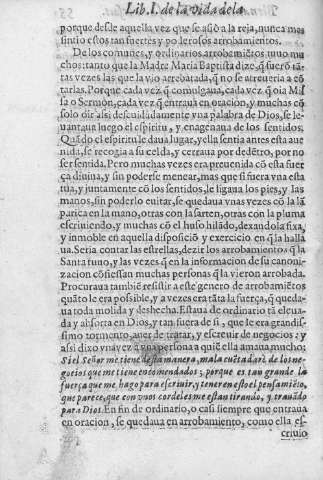 Lib. I. de la vida de la
porque desde aquella vez que se asiò a la reja, nunca mas
sintio estos tan fuertes y poderosos arrobamientos.
De los comunes, y ordinarios arrobamiẽtos tuuo mu
chos: tanto que la Madre Maria Baptista dize, q̃ fuerõ tã
tas vezes las que la vio arrobada, q̃ no se atreueria a cõ
tarlas. Porque cada vez q̃ comulgaua, cada vez q̃ oia Mis
sa o Sermõn, cada vez q̃ entraua en oracion, y muchas cõ
solo dezirle assi descuidadamente vna palabra de Dios, se le-
uantaua luego el espiritu, y enagenaua de los sentidos.
Quãdo el espiritu le daua lugar, y ella sentia antes esta aue
nida, se recogia a su celda, y cerraua por dedẽtro, por no
ser sentida. Pero muchas vezes era preuenida cõ esta fuer
ça diuina, y sin poderse menear, mas que si fuera vna esta
tua, y juntamente cõ los sentidos, le ligaua los pies, y las
manos, sin poderlo euitar, se quedaua vnas vezes cõ la lã
para en la mano, otras con la sarten, otras con la pluma
escriuiendo, y muchas cõ el huso hilãdo, dexandola fixa,
y inmoble en aquella disposiciõ y exercicio en q̃ la halla
ua. Seria contar las estrellas, dezir los arrobamientos q̃ la
Santa tuuo, y las vezes q̃ en la informacion de su canoni-
zacion cõfiessan muchas personas q̃ la vieron arrobada.
Procuraua tambiẽ resistir a este genero de arrobamiẽtos
quãto le era possible, y a vezes era tãta la fuerça, q̃ queda-
ua toda molida y deshecha. Estaua de ordinario tã eleua-
da y absorta en Dios, y tan fuera de si, que le era grandis-
simo tormento, auer de tratar, y escreuir de negocios; y
assi dixo vna vez a vna persona a quiẽ ella amaua mucho;
Si el Señor me tiene desta manera, mala cuẽta darè de los ne-
gocios que me tiene encomendados; porque es tan grande la
fuerça que me hago para escriuir, y tener en esto el pensamiẽto,
que parece, que con vnos cordeles me estan tirando, y trauãdo
para Dios. En fin de ordinario, o casi siempre que entraua
en oracion, se quedaua en arrobamiento, como ella es-
criuio